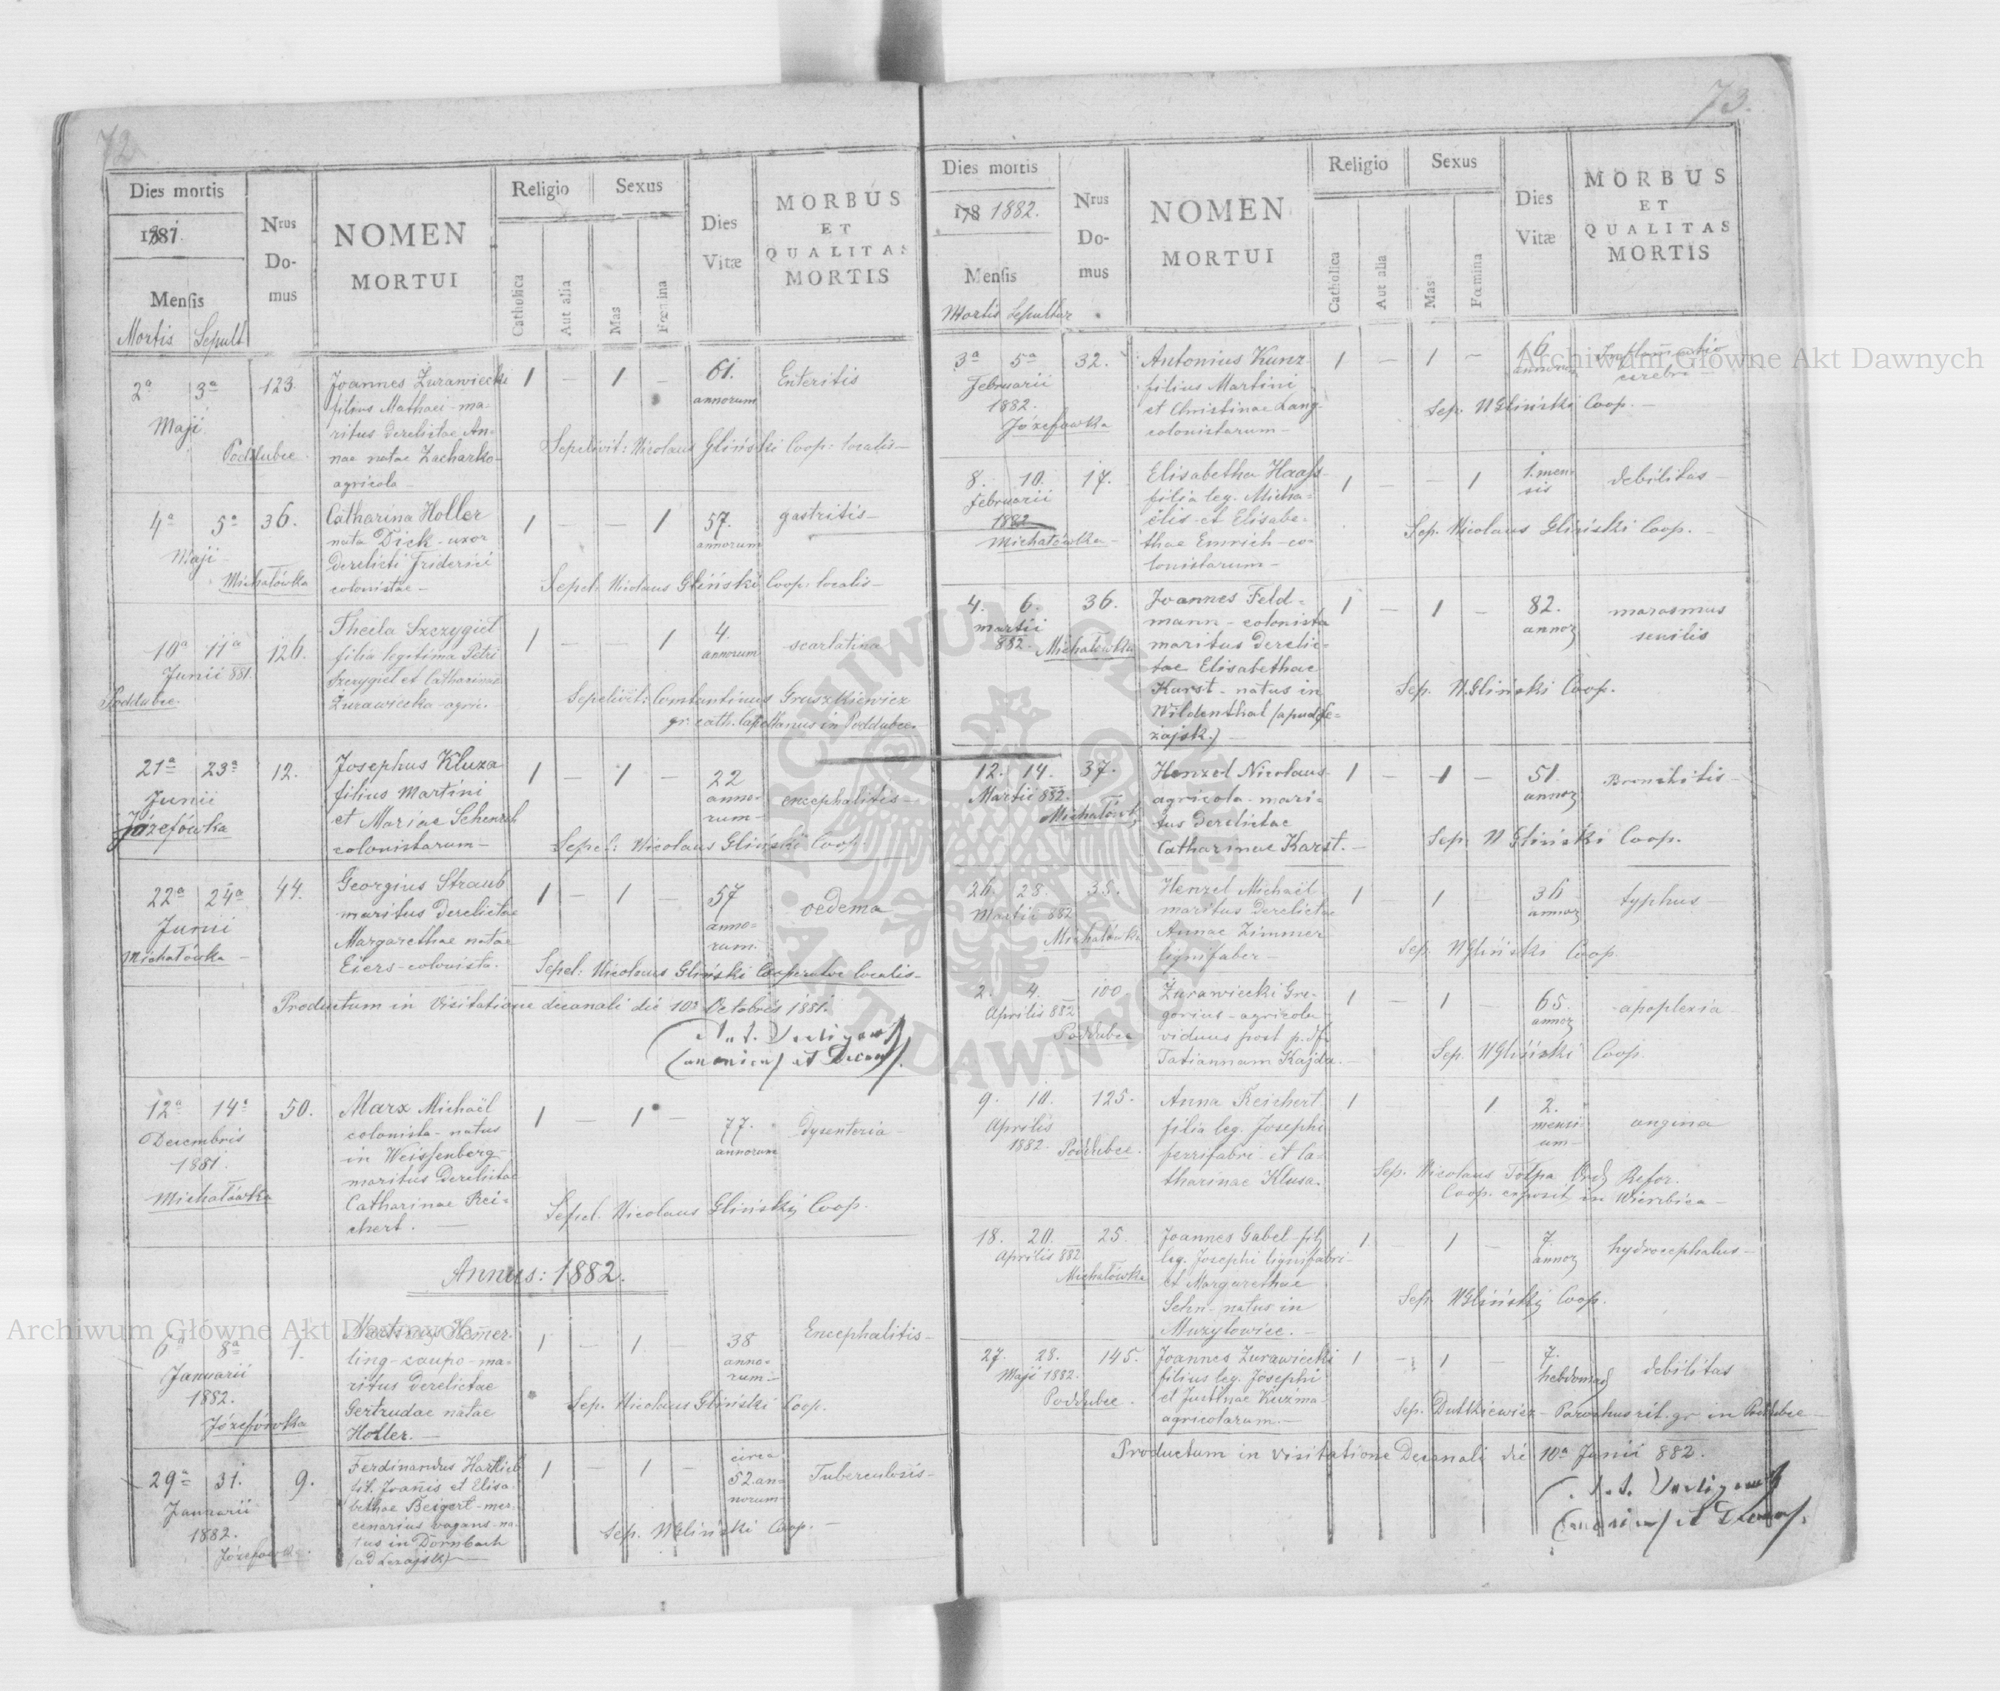 72
Dies mortis
1881.
Mensis
Mortis Sepult
Nrus
Do-
mus
NOMEN
MORTUI
Religio
Catholica
Aut alia
Sexus
Mas
Fœmina
Dies
Vitæ
MORBUS
ET
QUALITAS
MORTIS
2a 3a 123. Joannes Żurawiecki 1 — 1 — 61. Enteritis
filius Mathaei - ma- annorum
Maji ritus derelictae An-
Poddubce. nae natae Zacharko- Sepelivit: Nicolaus Gliński Coop. localis —
agricola —
4a 5a 36. Catharina Holler 1 — — 1 57. gastritis —
nata Dick - uxor annorum
Maji derelicti Friderici
Michałówka colonistae — Sepel: Nicolaus Gliński Coop. localis —
10a 11a 126. Thecla Szczygieł 1 — — 1 4. scarlatina
filia legitima Petri annorum
Junii 881. Szczygieł et Catharinae
Poddubce. Żurawiecka - agric. — Sepelivit: Constantinus Gruszkiewicz
gr. cath. Capellanus in Poddubce.
21a 23a 12. Josephus Kluza 1 — 1 — 22 encephalitis —
Junii filius Martini anno-
Józefówka et Mariae Schensch rum —
colonistarum — Sepel: Nicolaus Gliński Coop.
22a 24a 44. Georgius Straub 1 — 1 — 57 oedema
Junii maritus derelictae anno-
Michałówka — Margarethae natae rum.
Eiers - colonista. Sepel: Nicolaus Gliński Cooperator localis —
Productum in visitatione decanali die 10a Octobris 1881.
Canonicus et Decanus.
12a 14a 50. Marx Michaël 1 — 1 — 77. dysenteria —
Decembris colonista - natus annorum
1881. in Weissenberg —
Michałówka maritus derelictae
Catharinae Rei-
chert. — Sepel. Nicolaus Gliński Coop.
Annus: 1882.
6a 8a 1. Martinus Hemer- 1 — 1 — 38 Encephalitis —
Januarii ling - caupo - ma- anno-
1882. ritus derelictae rum —
Józefówka Gertrudae natae Sep. Nicolaus Gliński Coop.
Holler. —
29a 31. 9. Ferdinandus Hartlieb 1 — 1 — circa Tuberculosis —
Januarii fil. Joannis et Elisa- 52 an-
1882. bethae Beigert - mer- norum
Józefówka. cenarius vagans - na-
tus in Dornbach Sep. N Gliński Coop. —
(ad Leżajsk) —
73.
Dies mortis
178 1882.
Mensis
Mortis Sepultur
Nrus
Do-
mus
NOMEN
MORTUI
Religio
Catholica
Aut alia
Sexus
Mas
Fœmina
Dies
Vitæ
MORBUS
ET
QUALITAS
MORTIS
3a 5a 32. Antonius Kunz 1 — 1 — 16 Inflammatio
Februarii filius Martini annorum cerebri
1882. et Christinae Lang — Sep. N Gliński Coop. —
Józefówka colonistarum —
8. 10. 17. Elisabetha Haass 1 — — 1 1. men- debilitas —
Februarii filia leg. Micha- sis
1882 ëlis et Elisabe- Sep. Nicolaus Gliński Coop.
Michałówka — thae Emrich - co-
lonistarum —
4. 6. 36. Joannes Feld- 1 — 1 — 82. marasmus
martii mann - colonista annor senilis
882. Michałówka maritus derelic-
tae Elisabethae
Karst - natus in Sep. N Gliński Coop.
Wildenthal (apud Le-
żajsk.) —
12. 14. 37. Henzel Nicolaus 1 — 1 — 51. Bronchitis —
Martii 882. agricola - mari- annor
Michałówk tus derelictae
Catharinae Karst. — Sep. N Gliński Coop.
26. 28. 35. Henzel Michaël 1 — 1 — 36 typhus —
Martii 882 maritus derelictae annor
Michałówka Annae Zimmer Sep. N Gliński Coop.
lignifaber —
2. 4. 100. Żurawiecki Gre- 1 — 1 — 65. apoplexia —
Aprilis 882 gorius - agricola annor
Poddubce viduus post p. df.
Tatiannam Kajda. — Sep. N Gliński Coop.
9. 10. 125. Anna Reichert 1 1 2. angina
Aprilis filia leg. Josephi mensi-
1882. Poddubce. ferrifabri et Ca- um —
tharinae Klusa. Sep. Nicolaus Tołpa Ord. Refor.
Coop. exposit. in Wierzbica —
18. 20. 25. Joannes Gabel fil. 1 — 1 — 7. hydrocephalus —
Aprilis 882. leg. Josephi lignifabri annor
Michałówka et Margarethae
Sehn - natus in Sep. N Gliński Coop.
Mużyłowice. —
27. 28. 145. Joannes Żurawiecki 1 — 1 — 7. debilitas
Maji 1882. filius leg. Josephi hebdomad
Poddubce. et Justinae Kuźma Sep. Dutkiewicz - Parochus rit. gr. in Poddubce —
agricolarum. —
Productum in visitatione Decanali die 10a Junii 882.
Canonicus et Decanus.
Archiwum Główne Akt Dawnych
Archiwum Główne Akt Dawnych
ARCHIWUM GŁÓWNE
AKT DAWNYCH